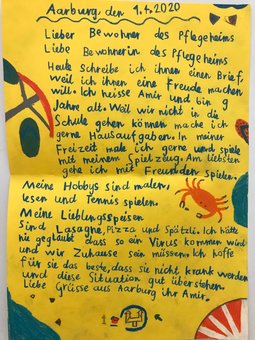 Aarburg, den 1.4.2020
Lieber Bewohner des Pflegeheims
Liebe Bewohnerin des Pflegeheims
Heute Schreibe ich ihnen einen Brief,
weil ich ihnen eine Freude machen
will. Ich heisse Amir und bin 9
Jahre alt. Weil wir nicht in die
Schule gehen können mache ich
gerne Hausaufgaben. In meiner
Freizeit male ich gerne und spiele
mit meinem Spielzeug. Am liebsten
gehe ich mit Freunden spielen.
Meine Hobbys sind malen,
lesen und Tennis spielen.
Meine Lieblingsspeisen
Sind Lasagne, Pizza und Spätzli. Ich hätte
nie geglaubt dass so ein Virus kommen wird
und wir Zuhause sein müssen. Ich hoffe
für sie das beste, dass Sie nicht krank werden
und diese Situation gut überstehen.
Liebe Grüsse aus Aarburg ihr Amir.